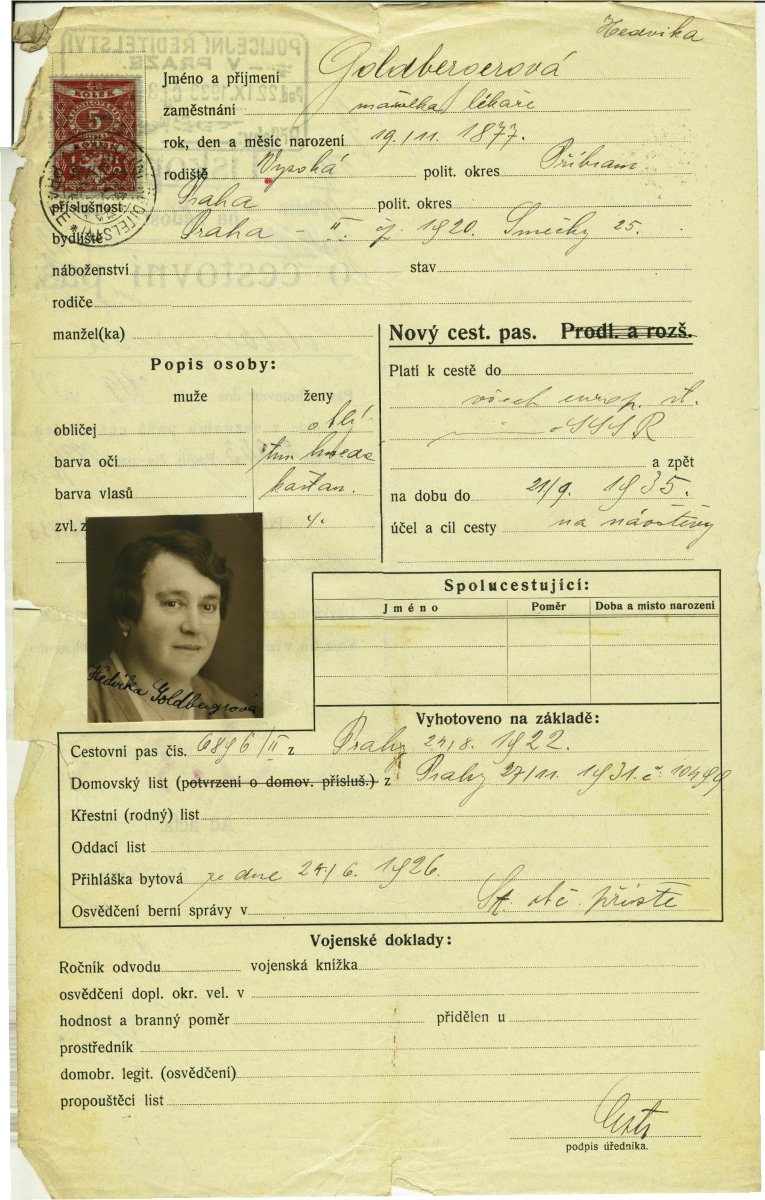 Hedvika
Jméno a příjmení Goldbergerová
zaměstnání manželka lékaře
rok, den a měsíc narození 19./11. 1877.
rodiště Vysoká polit. okres Příbram
příslušnost: Praha polit. okres
bydliště Praha - II. čp. 1920. Smečky 25.
náboženství stav
rodiče
manžel(ka)
Nový cest. pas. Prodl. a rozš.
Popis osoby:
muže ženy
obličej oblý
barva očí tm hnědé
barva vlasů kaštan.
zvl. z
Platí k cestě do
všech evrop. st.
SSSR
a zpět
na dobu do 21/9. 1935.
účel a cíl cesty na návštěvy
Hedvika Goldbergrová
Spolucestující:
Jméno Poměr Doba a místo narození
Vyhotoveno na základě:
Cestovní pas čís. 6896/II z Prahy 24/8. 1922.
Domovský list (potvrzení o domov. přísluš.) z Prahy 27/11. 1931. č. 10499
Křestní (rodný) list
Oddací list
Přihláška bytová ze dne 24/6. 1926.
Osvědčení berní správy v St. obč. příště
Vojenské doklady:
Ročník odvodu vojenská knížka
osvědčení dopl. okr. vel. v
hodnost a branný poměr přidělen u
prostředník
domobr. legit. (osvědčení)
propouštěcí list
podpis úředníka.